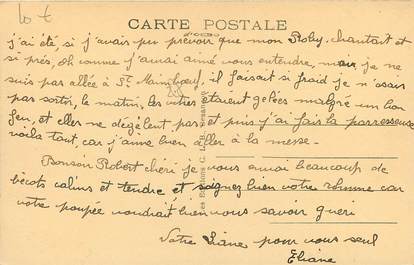 10 t
CARTE POSTALE
j'ai été, si j'avais pu prévoir que mon Roby chantait et
si près, oh comme j'aurai aimé vous entendre, mais je ne
suis pas allée à St Mainboeuf, il faisait si froid je n'osais
pas sortir, le matin, les vitres étaient gelées malgré un bon
feu, et elles ne dégèlent pas et puis j'ai fais la paresseuse
voilà tout, car j'aime bien aller à la messe -
Bonsoir Robert chéri je vous envoi beaucoup de
bécots calins et tendre et soignez bien votre rhume car
votre poupée voudrait bien vous savoir guéri
Votre Liane pour vous seul
Eliane
Les Editions C.